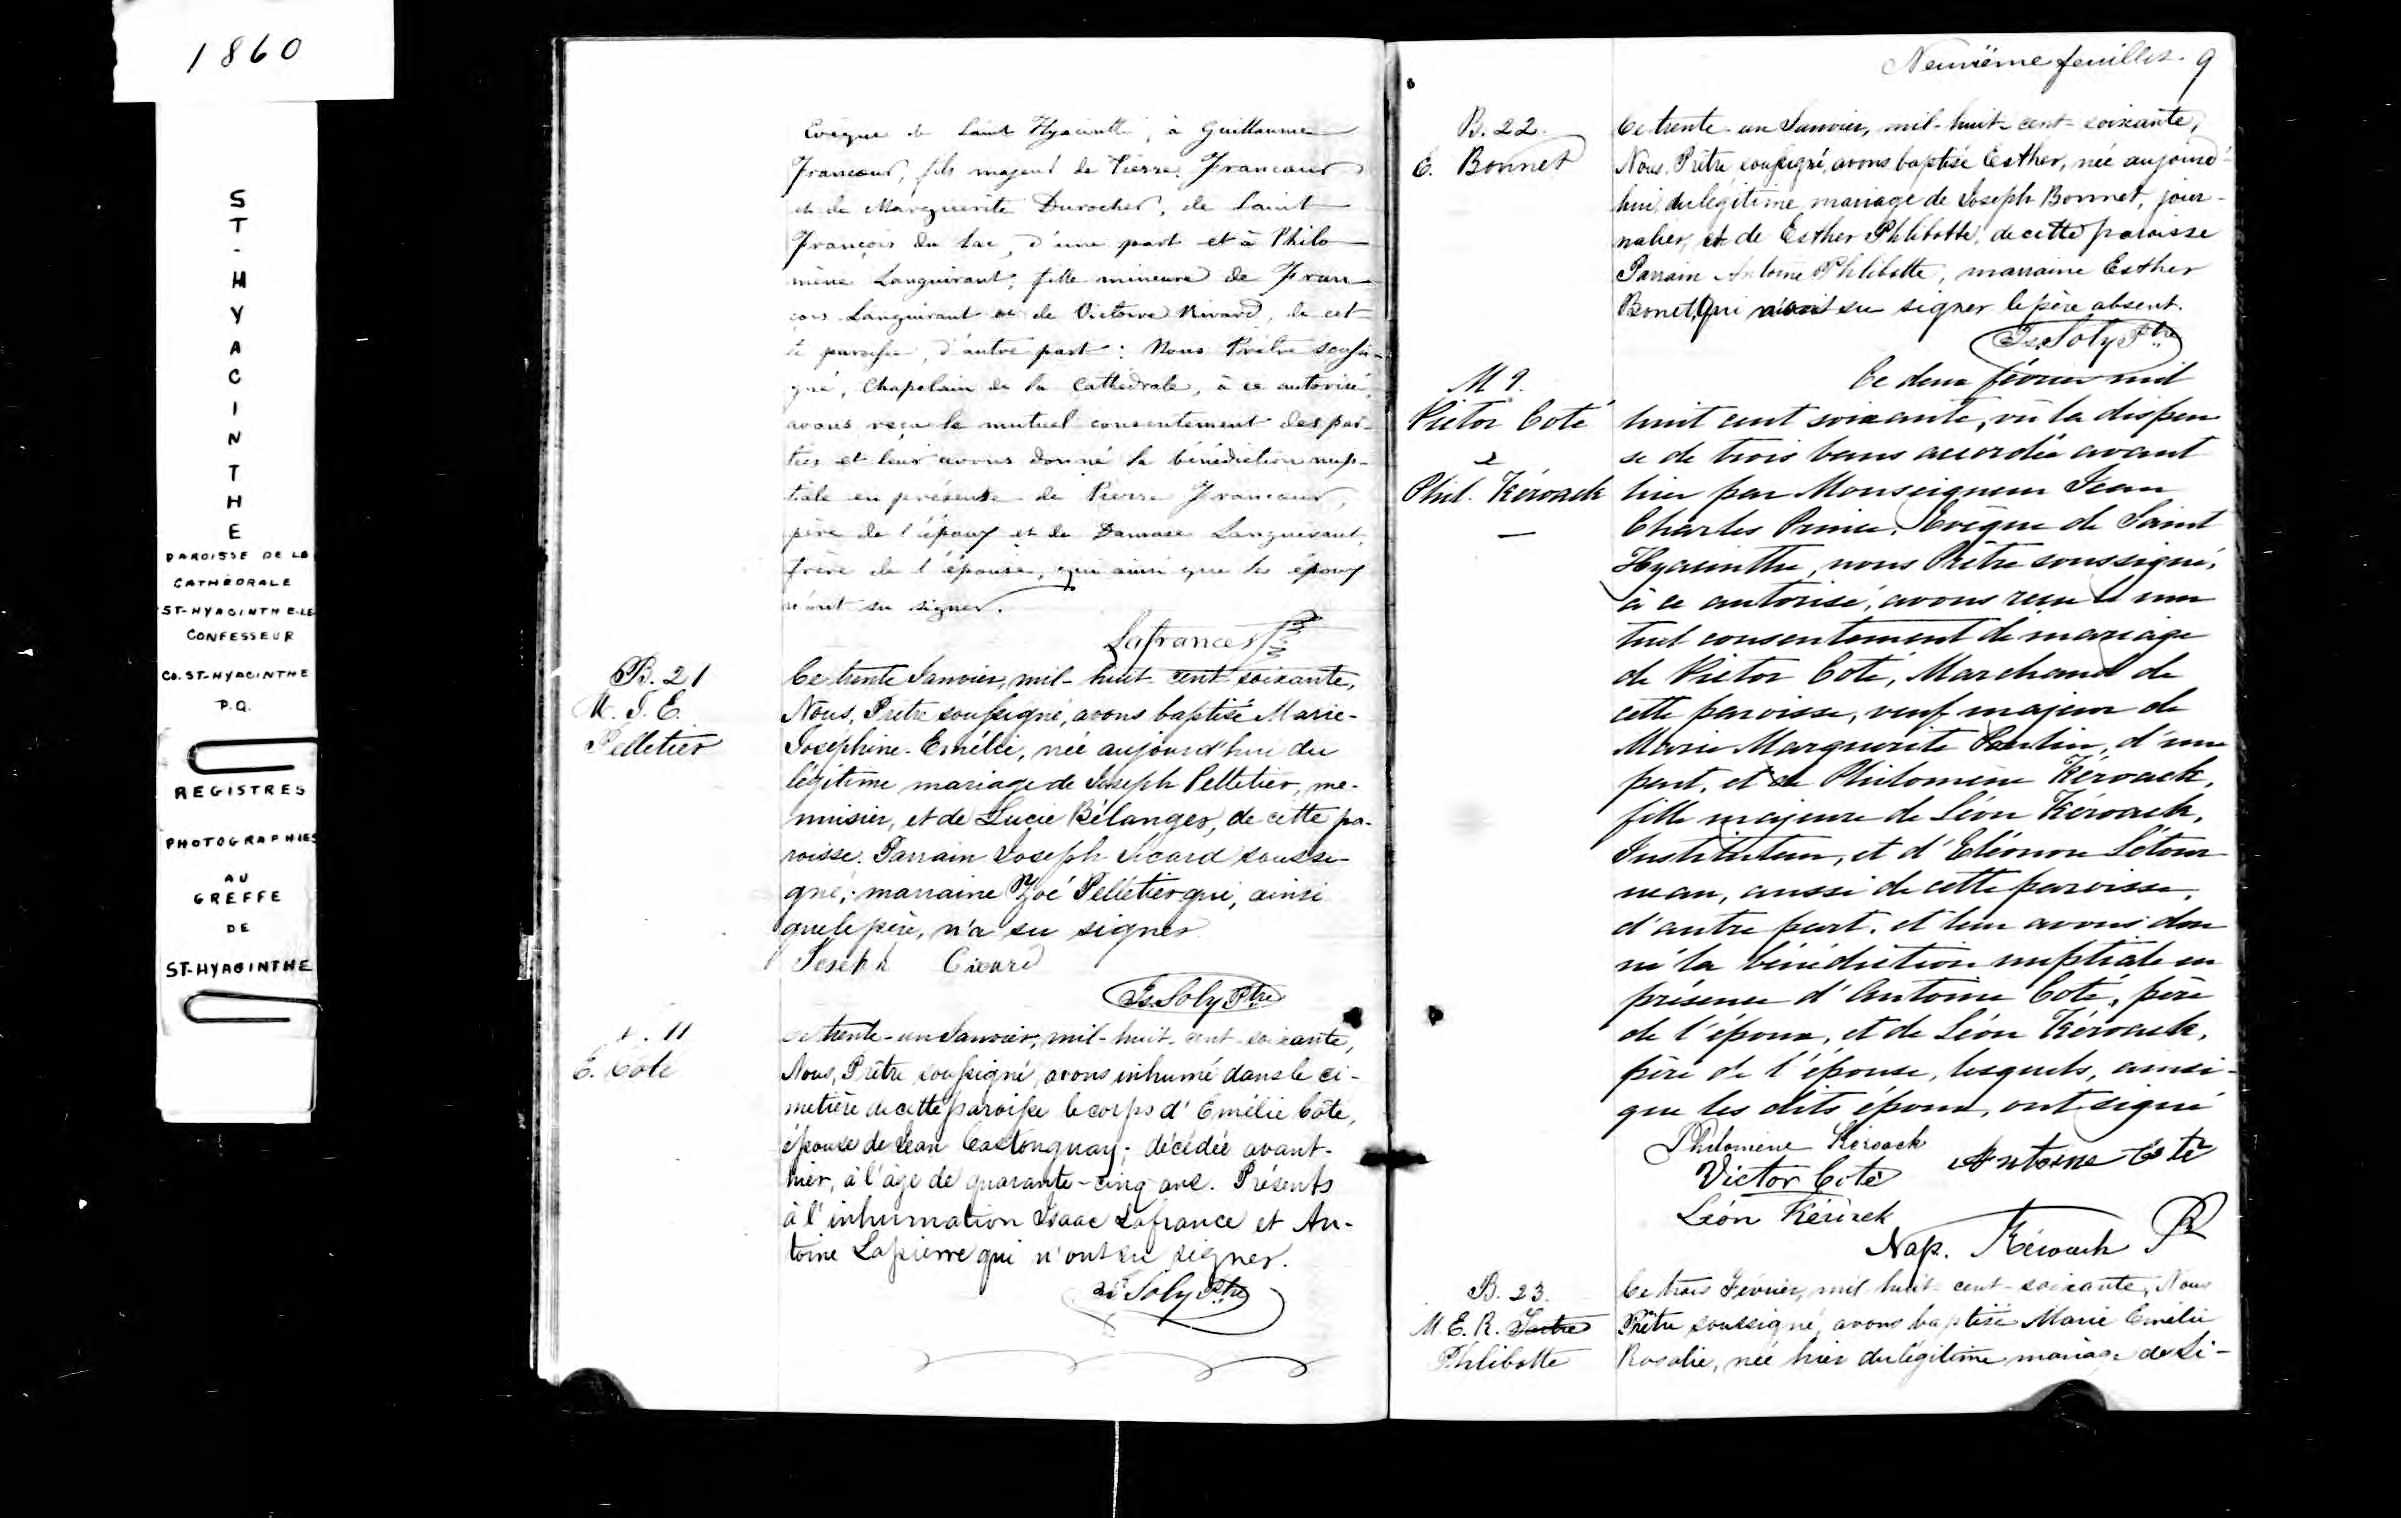 1860
S
T
-
H
Y
A
C
I
N
T
H
E
PAROISSE DE LA
CATHÉDRALE
ST-HYACINTHE-LE
CONFESSEUR
CO. ST-HYACINTHE
P.Q.
REGISTRES
PHOTOGRAPHIES
AU
GREFFE
DE
ST-HYACINTHE
Evêque de Saint Hyacinthe, à Guillaume
Francœur, fils majeur de Pierre Francœur
et de Marguerite Durocher, de Saint
François du Lac, d'une part et à Philo
mène Languirant, fille mineure de Fran
çois Languirant et de Victoire Rivard, de cet
te paroisse, d'autre part : Nous Prêtre soussi-
gné, Chapelain de la Cathédrale, à ce autorisé,
avons reçu le mutuel consentement des par-
ties et leur avons donné la bénédiction nup-
tiale en présence de Pierre Francœur,
père de l'époux et de Damase Languirant,
frère de l'épouse, qui ainsi que les époux
n'ont su signer.
Lafrance
B. 21
M. J. E.
Pelletier
Ce trente Janvier, mil-huit cent soixante,
Nous, Prêtre soussigné, avons baptisé Marie-
Joséphine-Emélie, née aujourd'hui du
légitime mariage de Joseph Pelletier, me-
nuisier, et de Lucie Bélanger, de cette pa-
roisse. Parrain Joseph Sicard soussi-
gné; marraine Zoé Pelletier qui, ainsi
que le père, n'a su signer
Joseph Cicard
Is. Soly Ptre
11
E. Coté
Ce trente-un Janvier, mil-huit-cent-soixante,
Nous, Prêtre soussigné, avons inhumé dans le ci-
metière de cette paroisse le corps d'Emélie Côté,
épouse de Jean Castonguay, décédée avant-
hier, à l'âge de quarante-cinq ans. Présents
à l'inhumation Isaac Lafrance et An-
toine Lapierre qui n'ont su signer.
Is. Soly Ptre
Neuvième feuillet. 9
B. 22.
E. Bonnet
Ce trente-un Janvier, mil-huit-cent-soixante,
Nous, Prêtre soussigné, avons baptisé Esther, née aujourd'-
hui, du légitime mariage de Joseph Bonnet, jour-
nalier, et de Esther Phlibotte, de cette paroisse
Parrain Antoine Phlibotte, marraine Esther
Bonet, qui n'ont su signer le père absent.
Is. Soly Ptre
M 9.
Victor Coté
&
Phil. Kéroack
—
Ce deux février mil
huit cent soixante, vû la dispen
se de trois bans accordée avant
hier par Monseigneur Jean
Charles Prince, Evêque de Saint
Hyacinthe, nous Prêtre soussigné,
à ce autorisé, avons reçu le mu
tuel consentement de mariage
de Victor Coté, Marchand de
cette paroisse, veuf majeur de
Marie Marguerite d'une
part, et de Philomène Kéroack,
fille majeure de Léon Kéroack,
Instituteur, et d'Eléonore Létour
neau, aussi de cette paroisse,
d'autre part, et leur avons don
né la bénédiction nuptiale en
présence d'Antoine Coté, père
de l'époux, et de Léon Kéroack,
père de l'épouse, lesquels, ainsi-
que les dits époux, ont signé
Philomène Kéroack
Antoine Coté
Victor Coté
Léon Kéroack
Nap. Kéroack
B. 23.
M. E. R.
Phlibotte
Ce trois Février, mil huit-cent-soixante, Nous
Prêtre soussigné, avons baptisé Marie Emélie
Rosalie, née hier du légitime mariage de Li-